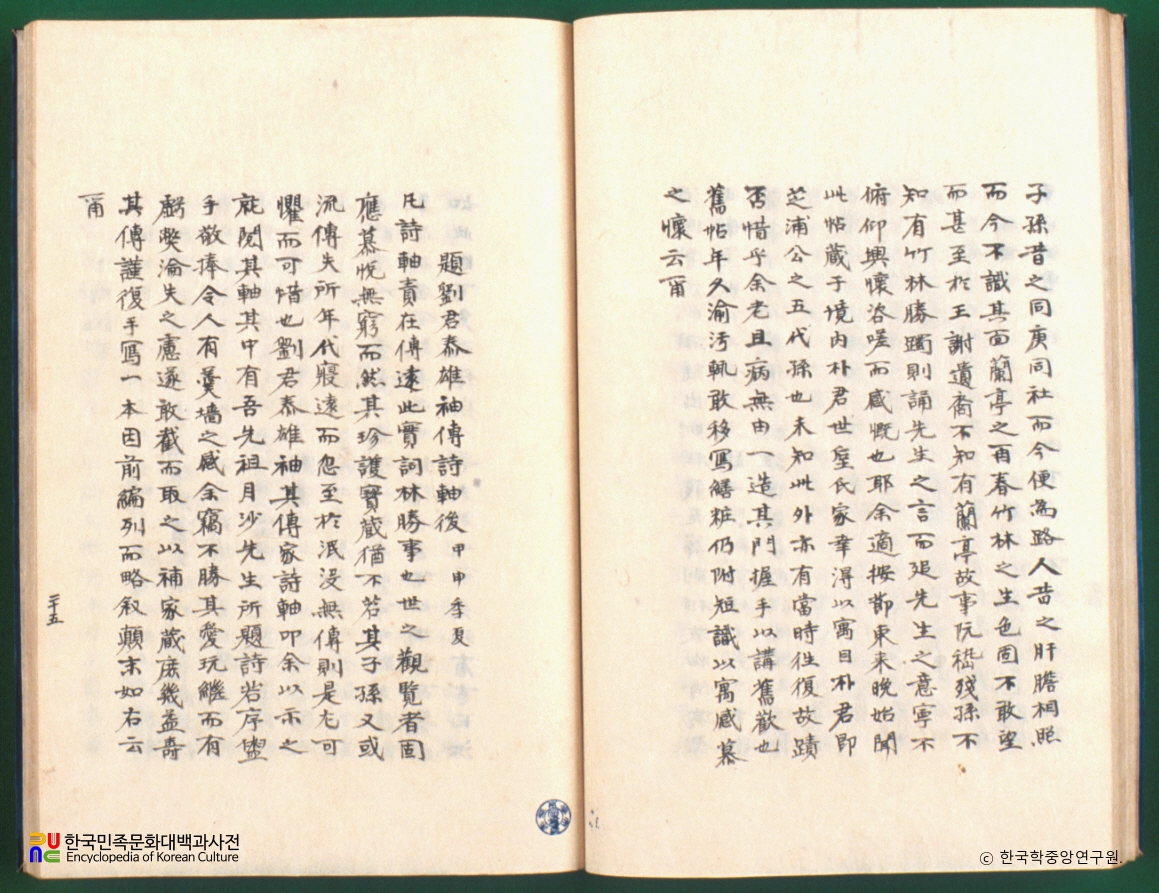 子孫昔之同庚同社而今便為路人昔之肝膽相照
而今不識其面蘭亭之再春竹林之生色固不敢望
而甚至於王謝遺裔不知有蘭亭故事阮嵇殘孫不
知有竹林勝躅則誦先生之言而追先生之意寧不
俯仰興懷咨嗟而感慨也耶余適按節東來晚始聞
此帖蔵于境内朴君世壁氏家幸得以寓目朴君即
芝浦公之五代孫也未知此外亦有當時徃復故蹟
否惜乎余老且病無由一造其門握手以講舊歡也
舊帖年久渝汚輒敢移寫繕粧仍附短識以寓感慕
之懷云甭
題劉君泰雄袖傳詩軸後 甲申季夏
凡詩軸責在傳遠此實詞林勝事也世之觀覽者固
應慕悅無窮而然其珍護寶蔵猶不若其子孫又或
流傳失所年代寢遠而忽至於泯没無傳則是尤可
懼而可惜也劉君泰雄袖其傳家詩軸叩余以示之
就閱其軸其中有吾先祖月沙先生所題詩若序盥
手敬捧令人有羹墻之感余竊不勝其愛玩繼而有
虧獘淪失之慮遂敢截而取之以補家蔵庶幾益壽
其傳謹復手寫一本因前編列而略叙顛末如右云
甭
二十五
한국민족문화대백과사전
Encyclopedia of Korean Culture
ⓒ 한국학중앙연구원.